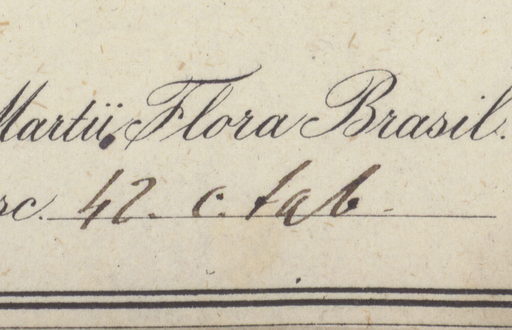 Martii, Flora Brasil.
sc. 42. c. tab.